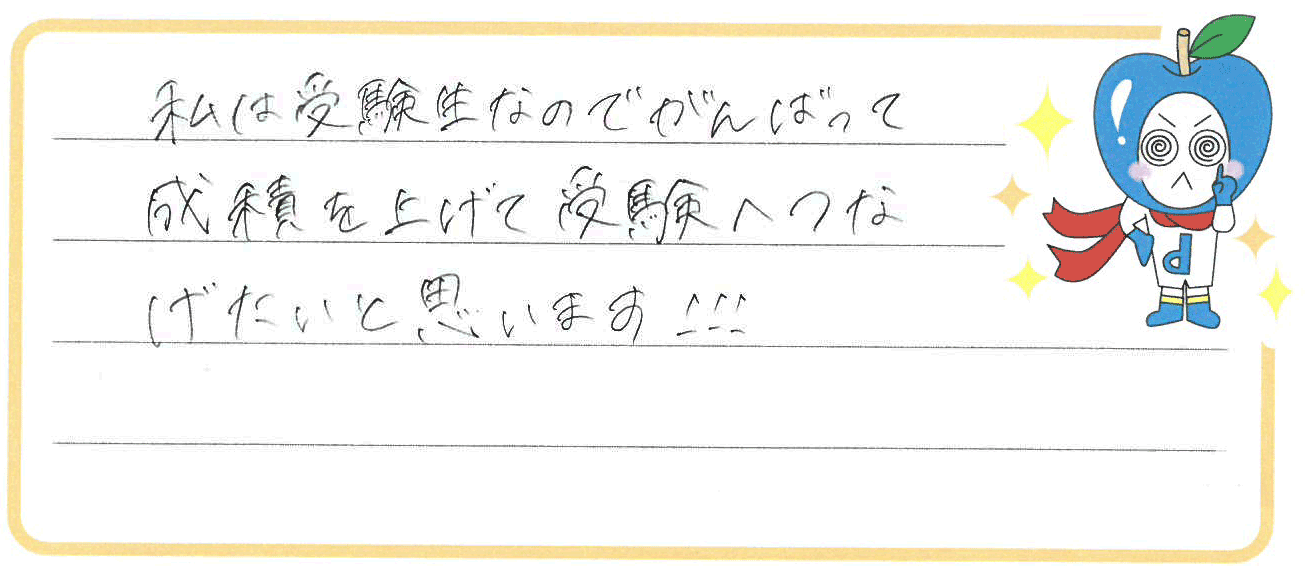 私は受験生なのでがんばって
成績を上げて受験へつな
げたいと思います!!!